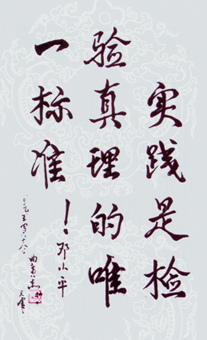 实践是检
验真理的唯
一标准！
邓小平